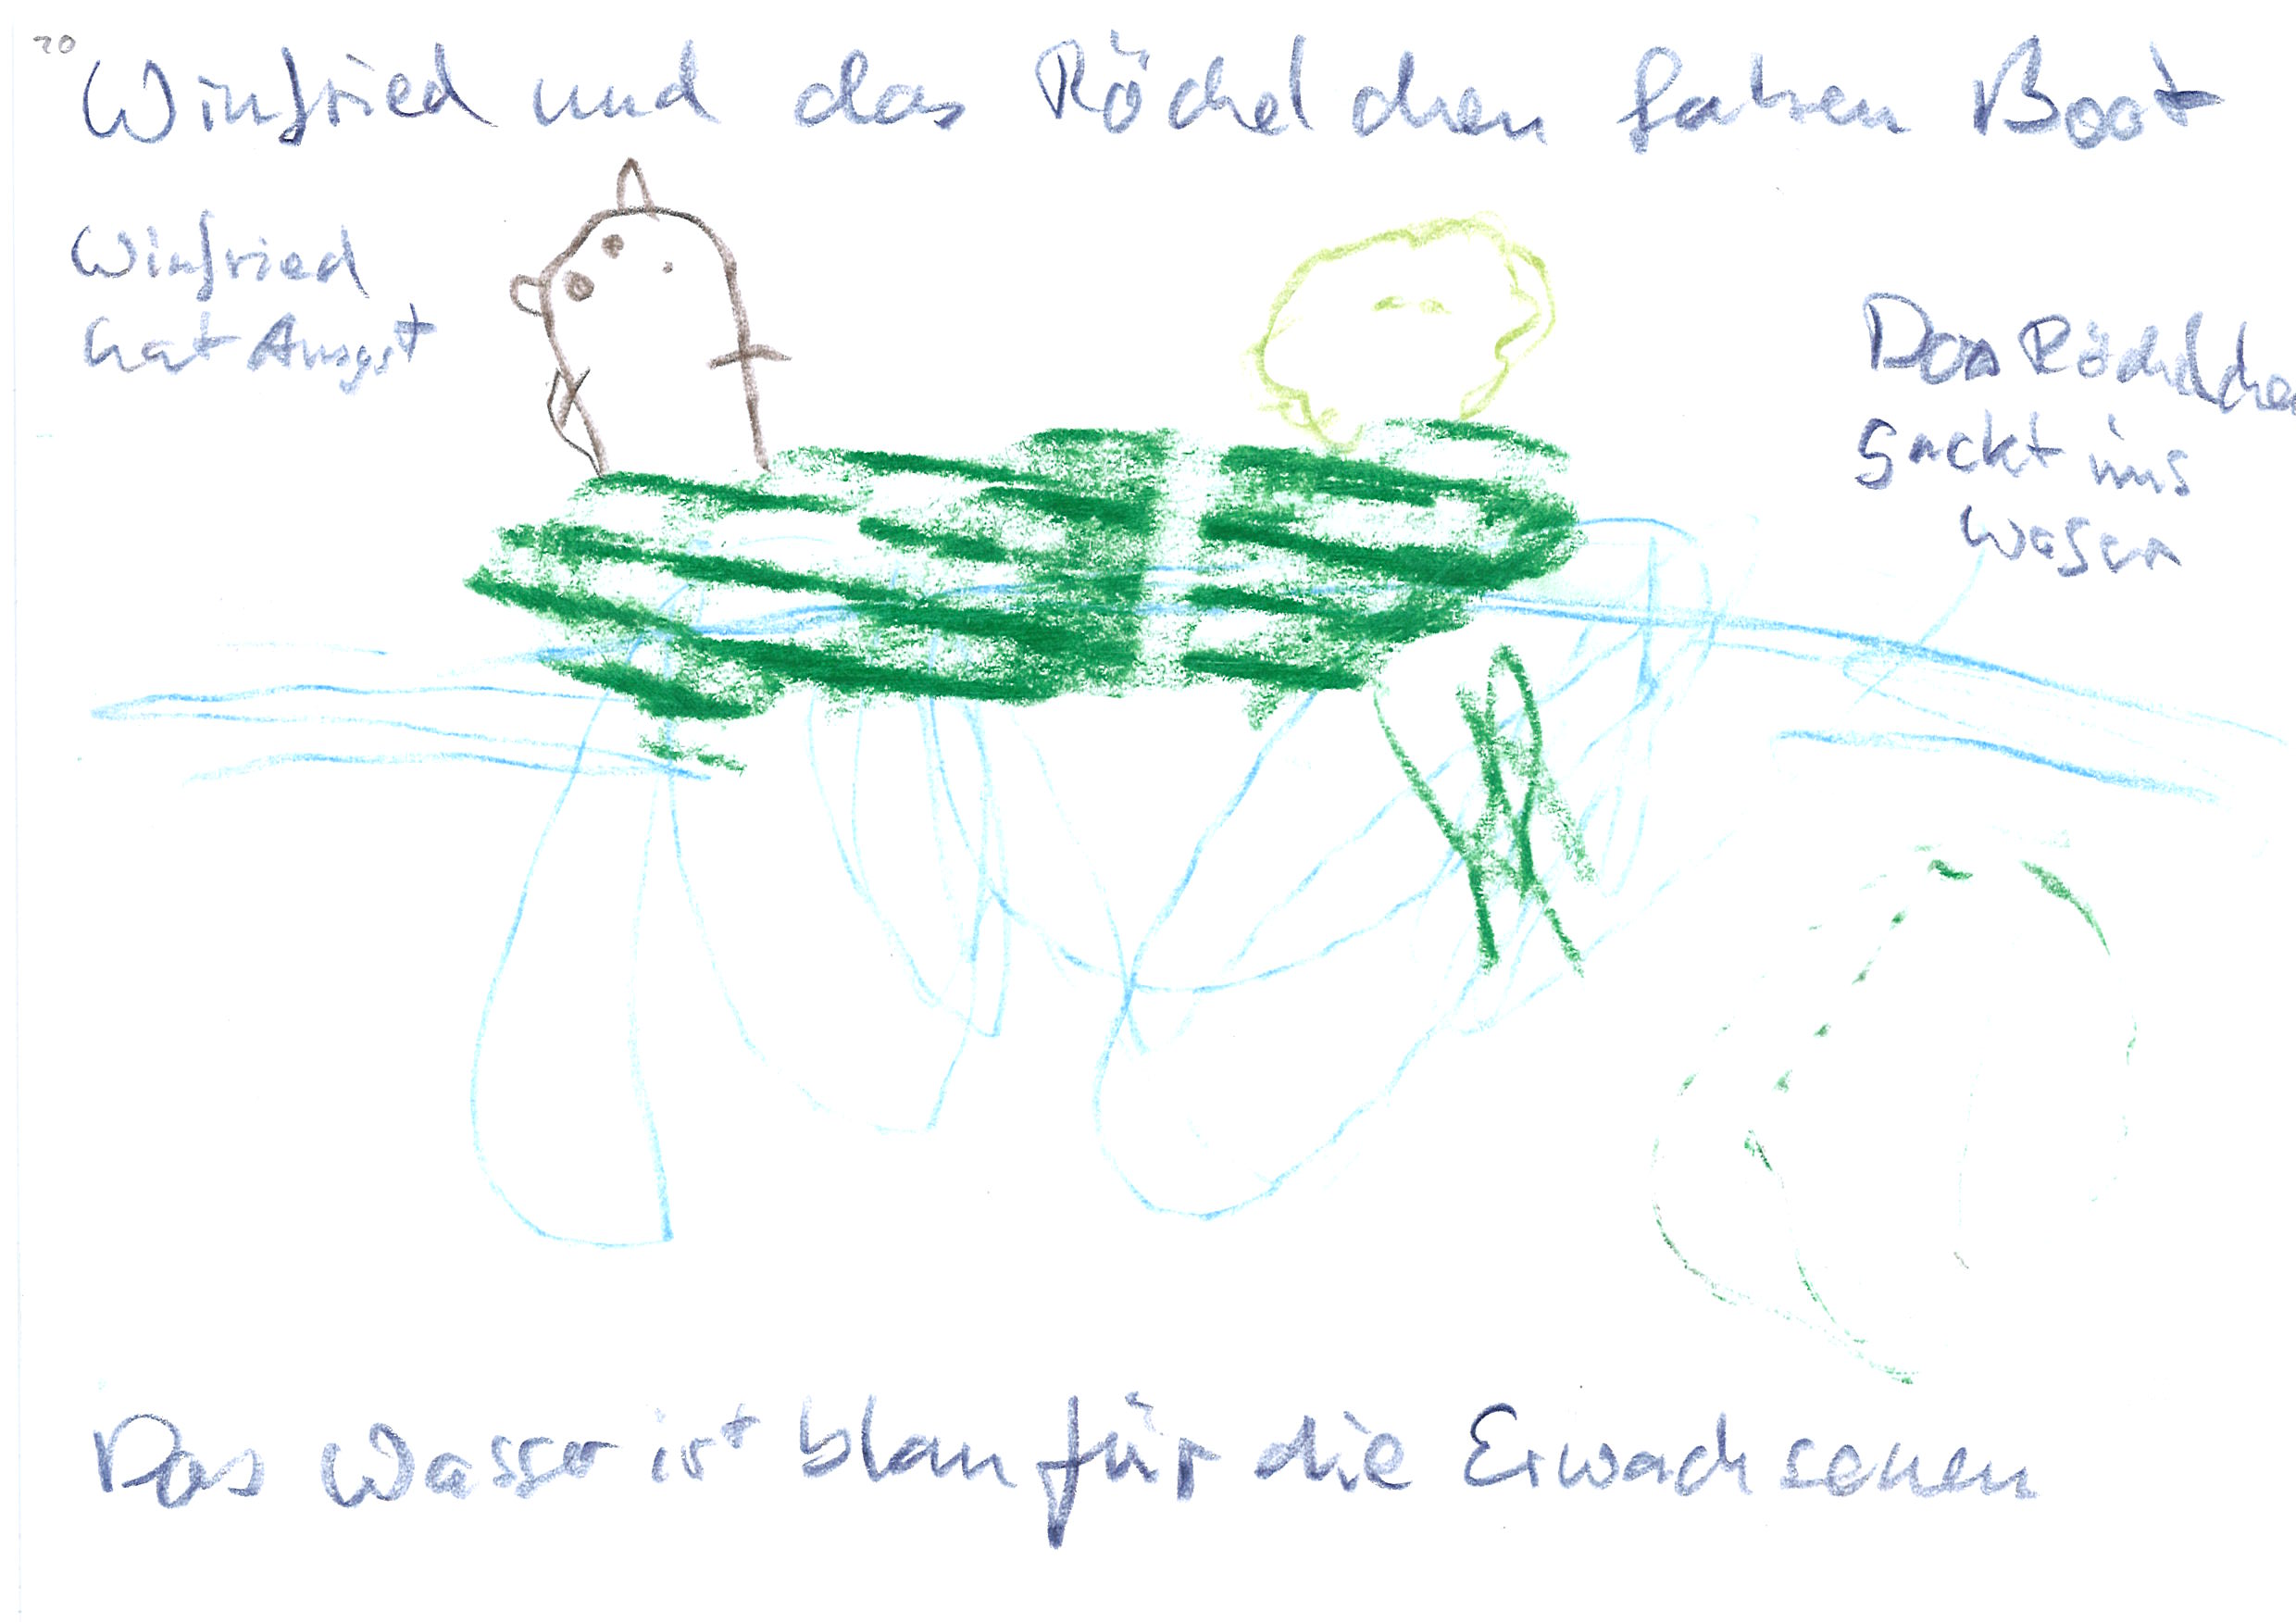 20
Winfried und das Röchelchen fahren Boot
Winfried
hat Angst
Das Röchelchen
sackt ins
Wasser
Das Wasser ist blau für die Erwachsenen